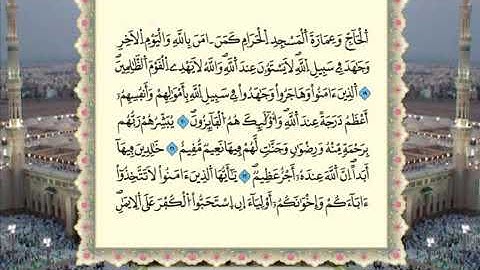 اَ۬لْحَآجِّ وَعِمَارَةَ اَ۬لْمَسْجِدِ اِ۬لْحَرَامِ كَمَنَ اٰمَنَ بِاللَّهِ وَالْيَوْمِ اِ۬لَاخِرِ
وَجَٰهَدَ فِے سَبِيلِ اِ۬للَّهِ لَا يَسْتَوُۥنَ عِندَ اَ۬للَّهِ وَاللَّهُ لَا يَهْدِے اِ۬لْقَوْمَ اَ۬لظَّٰلِمِينَ
١٩ اَ۬لذِينَ ءَامَنُواْ وَهَاجَرُواْ وَجَٰهَدُواْ فِے سَبِيلِ اِ۬للَّهِ بِأَمْوَٰلِهِمْ وَأَنفُسِهِمُۥٓ
أَعْظَمُ دَرَجَةً عِندَ اَ۬للَّهِ وَأُوْلَٰٓئِكَ هُمُ اُ۬لْفَآئِزُونَ ٢٠ يُبَشِّرُهُمْ رَبُّهُم
بِرَحْمَةٍ مِّنْهُ وَرِضْوَٰنٍ وَجَنَّٰتٍ لَّهُمْ فِيهَا نَعِيمٌ مُّقِيمٌ ٢١ خَٰلِدِينَ فِيهَآ
أَبَداً اِنَّ اَ۬للَّهَ عِندَهُۥٓ أَجْرٌ عَظِيمٌ ٢٢ يَٰٓأَيُّهَا اَ۬لذِينَ ءَامَنُواْ لَا تَتَّخِذُوٓاْ
ءَابَآءَكُمْ وَإِخْوَٰنَكُمُۥٓ أَوْلِيَآءَ اِنِ اِ۪سْتَحَبُّواْ اُ۬لْكُفْرَ عَلَى اَ۬لِايمَٰنِ